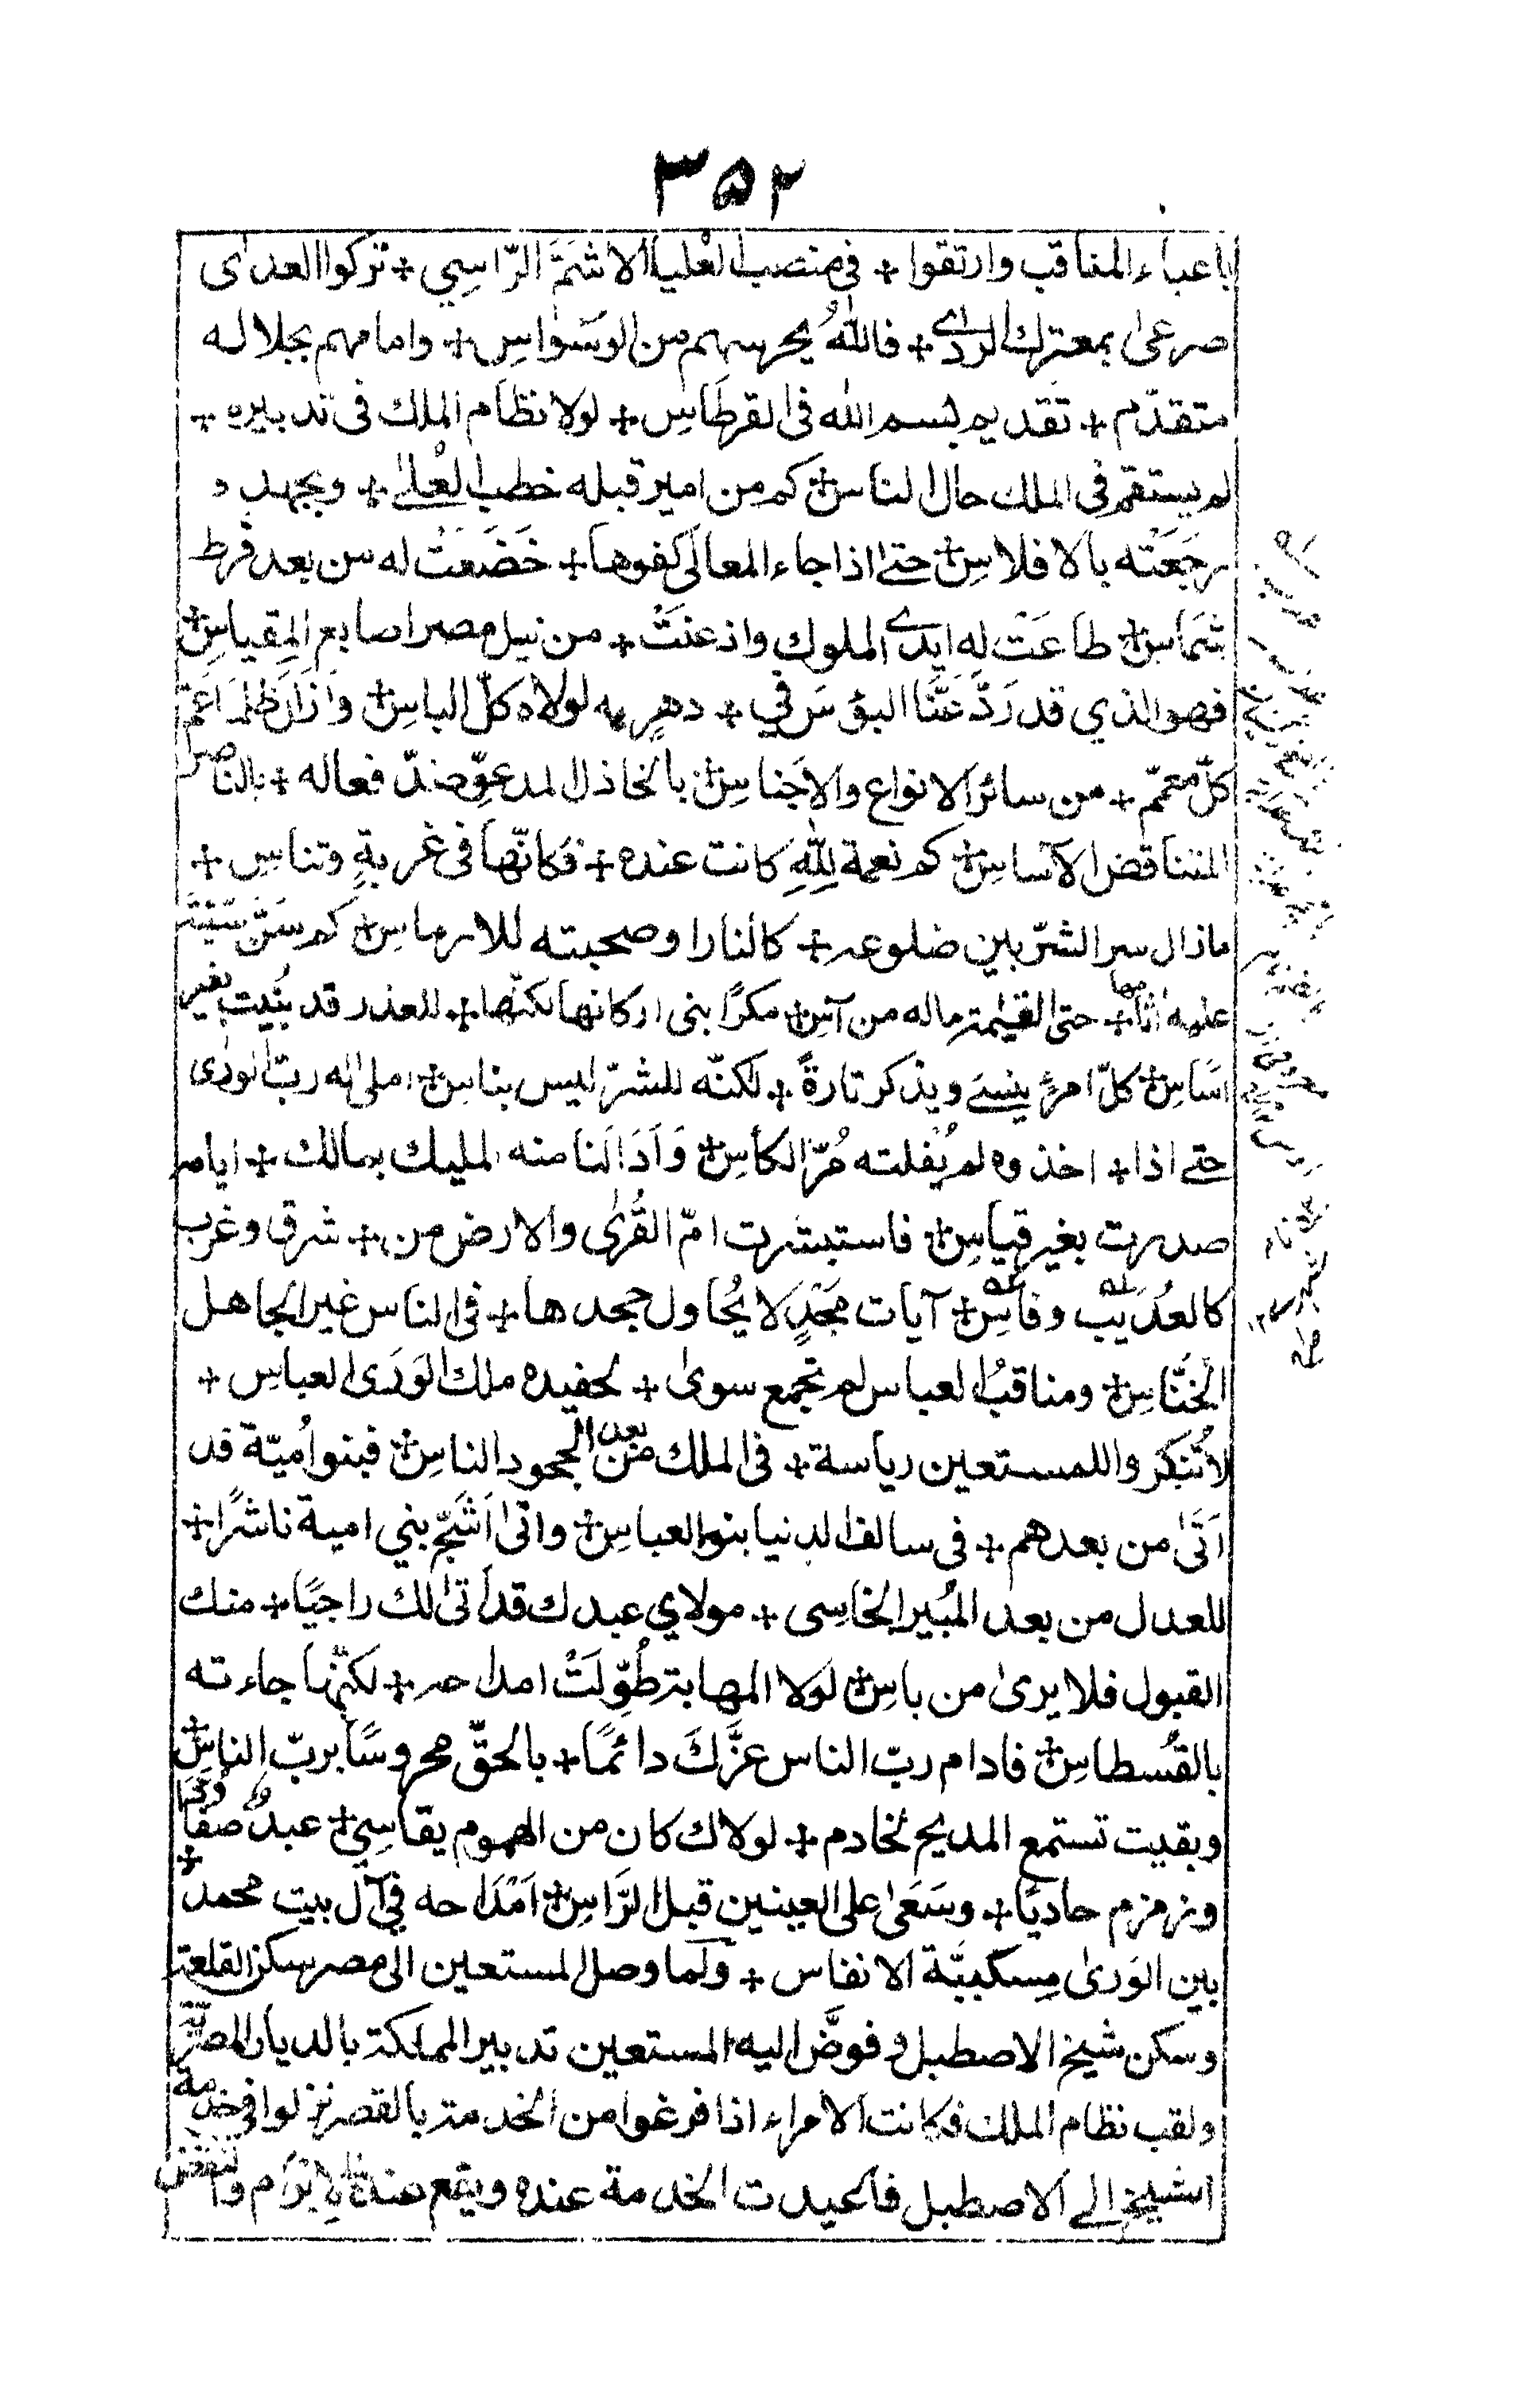 ٣٥٢
باعباء المناقب وارتقوا + في منصب العليا الاشم الراسي + تركوا العدى
صرعى بمعترك الردى + فالله يحرسهم من الوسواس + وامامهم بجلاله
متقدّم + تقديم بسم الله فى القرطاس + لولا نظام الملك فى تدبيره +
لم يستقم فى الملك حال الناس + كم من امير قبله خطب العلى + وبجهد
رجعته بالافلاس + حتى اذا جاء المعالى كفوها + خَضَعَتْ له من بعد فرط
شماس + طاعَتْ له ايدى الملوك واذعنتْ + من نيل مصر اصابع المقياس +
فهو الذي قد رَدَّ عَنَّا البؤس في + دهرٍ به لولاه كلّ الباس + وازال ظلما عمّ
كلّ معمّم + من سائر الانواع والاجناس + بالخاذل المدعوّ ضدّ فعاله + بالناصر
المتناقض الآساس + كم نعمة للهِ كانت عنده + فكانّها فى غربةٍ وتناس +
مازال سر الشرّ بين ضلوعه + كالنار او صحبته للارماس + كم سَنَّ سيّئة
عليه اثامها + حتى القيٰمة ماله من آس + مكرًا بنى اركانها لكنّها + للغدر قد بُنيت بغير
اسَاس + كلّ امرئ ينسى ويذكر تارةً + لكنّه للشرّ ليس بناس + املى له ربّ الورى
حتى اذا + اخذوه لم يُفلته مُرّ الكأس + وَاَدَالَنا منه المليك بمالك + ايامه
صدرت بغير قياس + فاستبشرت امّ القُرى والارض من + شرق وغرب
كالعُذيب وفاس + آيات مَجْدٍ لا يُحاول جحدها + فى الناس غير الجاهل
الخنَّاس + ومناقبُ العباس لم تجمع سوى + لحفيده ملك الوَرَى العباس +
لا تُنكروا للمستعين رياسة + فى الملك من بعد الجحود الناس + فبنو اُميّة قد
اَتَى من بعدهم + فى سالف الدنيا بنو العباس + واتى اَشَجّ بني امية ناشرًا +
للعدل من بعد المُبير الخاسى + مولاي عبدك قد اتى لك راجيًا + منك
القبول فلا يرى من باس + لولا المهابة طُوّلَتْ امداحه + لكنّها جاءته
بالقُسطاس + فادام ربّ الناس عزَّكَ دائمًا + بالحقّ محروسًا بربّ الناس +
وبقيت تستمع المديح لخادم + لولاك كان من الهموم يقاسي + عبدٌ صفا ودًّا
وزمزم حاديًا + وسَعَى على العينين قبل الرَّاس + اَمْدَاحه في آل بيت محمد +
بين الوَرى مِسكيّة الانفاس + ولَمّا وصل المستعين الى مصر سكن القلعة
وسكن شيخ الاصطبل وفوَّض اليه المستعين تدبير المملكة بالديار المصريّة
ولقب نظام الملك فكانت الامراء اذا فرغوا من الخدمة بالقصر نزلوا في خدمة
الشيخ الى الاصطبل فاعيدت الخدمة عنده ويقع عنده الابرام والنقض